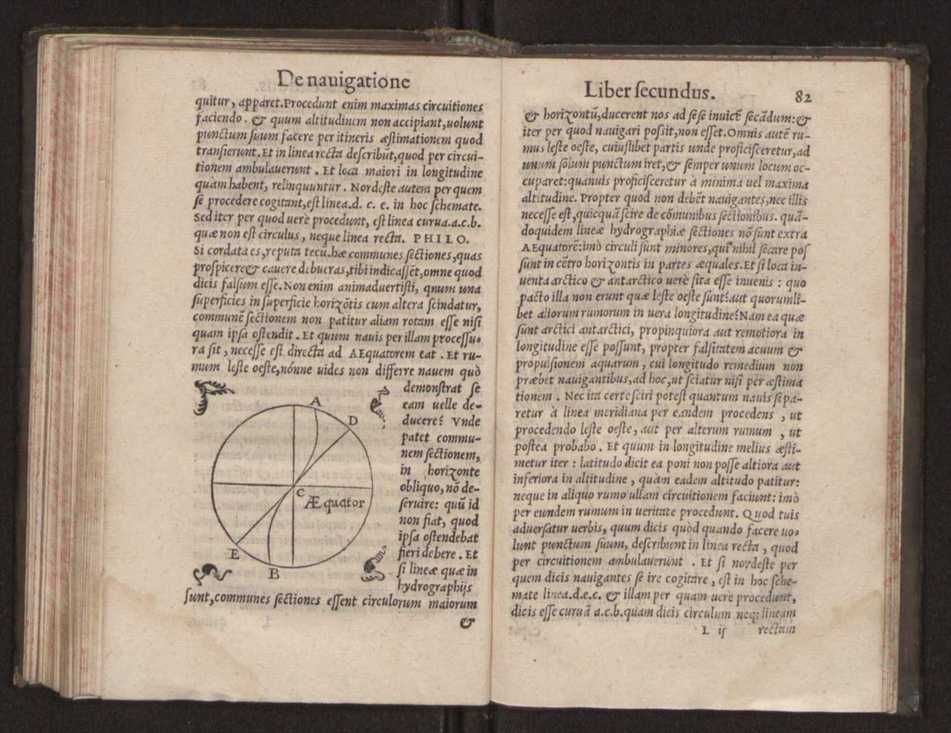 De nauigatione
quitur, apparet. Procedunt enim maximas circuitiones
faciendo. & quum altitudinem non accipiant, uolunt
punctum suum facere per itineris æstimationem quod
transierunt. Et in linea recta describũt, quod per circui-
tionem ambulauerunt. Et loca maiori in longitudine
quam habent, relinquuntur. Nordeste autem per quem
se procedere cogitant, est linea. d. c. e. in hoc schemate.
Sed iter per quod uerè procedunt, est linea curua. a. c. b.
quæ non est circulus, neque linea recta. PHILO.
Si cordata es, reputa tecũ. hæ communes sectiones, quas
prospicere & cauere debueras, tibi indicassẽt, omne quod
dicis falsum esse. Non enim animaduertisti, qnum una
superficies in superficie horizõtis cum altera scindatur,
communẽ sectionem non patitur aliam rotam esse nisi
quam ipsa ostendit. Et quum nauis per illam processu-
ra sit, necesse est directa ad AEquatorem eat. Et ru-
mum leste oeste, nónne uides non differre nauem quò
demonstrat se
eam uelle de-
ducere? Vnde
patet commu-
nem sectionem,
in horizonte
obliquo, nõ de-
seruire: quũ id
non fiat, quod
ipsa ostendebat
fieri debere. Et
si lineæ quæ in
hydrographijs
A
D
C
Æquator
E
B
sunt, communes sectiones essent circulorum maiorum
&
Liber secundus.
82
& horizontũ, ducerent nos ad sesè inuicẽ secãdum: &
iter per quod nauigari possit, non esset. Omnis autẽ ru-
mus leste oeste, cuiuslibet partis unde proficisceretur, ad
unum solum punctum iret, & semper unum locum oc-
cuparet: quamuis proficisceretur à minima uel maxima
altitudine. Propter quod non debẽt nauigantes, nec illis
necesse est, quicquã scire de cõmunibus sectionibus. quã-
doquidem lineæ hydrographiæ sectiones nõ sunt extra
AEquatorẽ: imò circuli sunt minores, qui nihil secare pos
sunt in cẽtro horizontis in partes æquales. Et si loca in-
uenta arctico & antarctico uerè sita esse inuenis: quo
pacto illa non erunt quæ leste oeste sunt? aut quorumli-
bet aliorum rumorum in uera longitudine? Nam ea quæ
sunt arctici antarctici, propinquiora aut remotiora in
longitudine esse possunt, propter falsitatem acuum &
propulsionem aquarum, cui longitudo remedium non
præbet nauigantibus, ad hoc, ut sciatur nisi per æstima
tionem. Nec ita certe sciri potest quantum nauis sepa-
retur à linea meridiana per eandem procedens, ut
procedendo leste oeste, aut per alterum rumum, ut
postea probabo. Et quum in longitudine melius æsti-
metur iter: latitudo dicit ea poni non posse altiora aut
inferiora in altitudine, quàm eadem altitudo patitur:
neque in aliquo rumo ullam circuitionem faciunt: imò
per eundem rumum in ueritate procedunt. Quod tuis
aduersatur uerbis, quum dicis quòd quando facere uo-
lunt punctum suum, describunt in linea recta, quod
per circuitionem ambulauerunt. Et si nordeste per
quem dicis nauigantes se ire cogitare, est in hoc sche-
mate linea. d. e. c. & illam per quam uerè procedunt,
dicis esse curuã a. c. b. quam dicis circulum neq; lineam
L ij
rectam